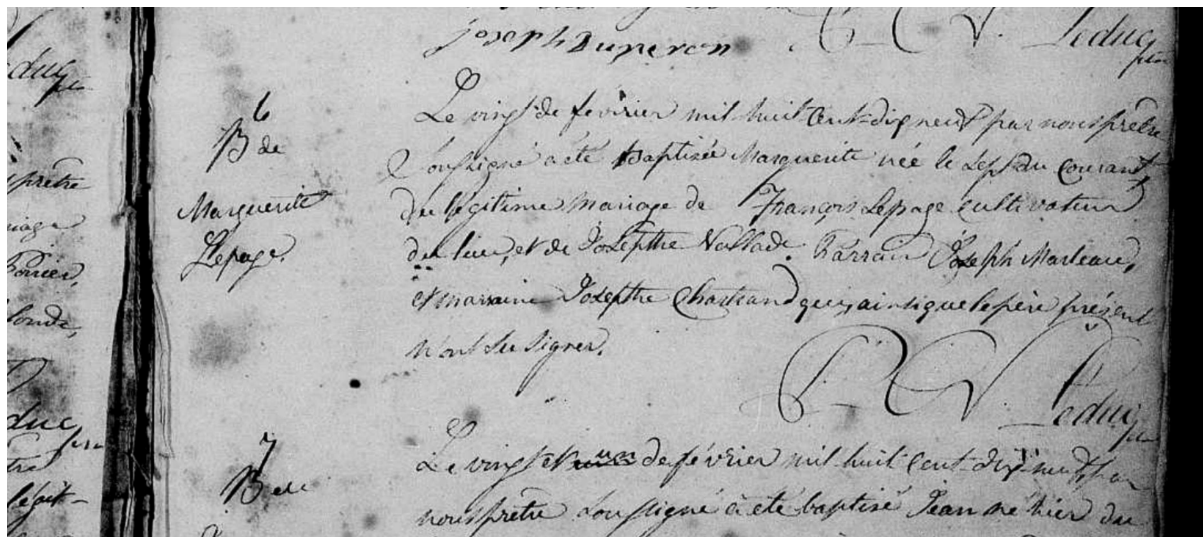 Joseph Duperon
Leduc ptre
6
B de
Marguerite
Lepage.
Le vingt de fevrier mil huit Cent-dix neuf par nous prêtre
Soussigné a été baptisée Marguerite née le Sept du Courant
du légitime mariage de François Lepage Cultivateur
du lieu, et de Josepthe Vallade. Parrain Joseph Marleau,
et marraine Josepthe Chartrand qui, ainsi que le père présent
n'ont su signer.
Leduc ptre
7
B de
Le vingt et un de février mil huit Cent-dix-neuf, par
nous prêtre Soussigné a été baptisé Jean né hier du